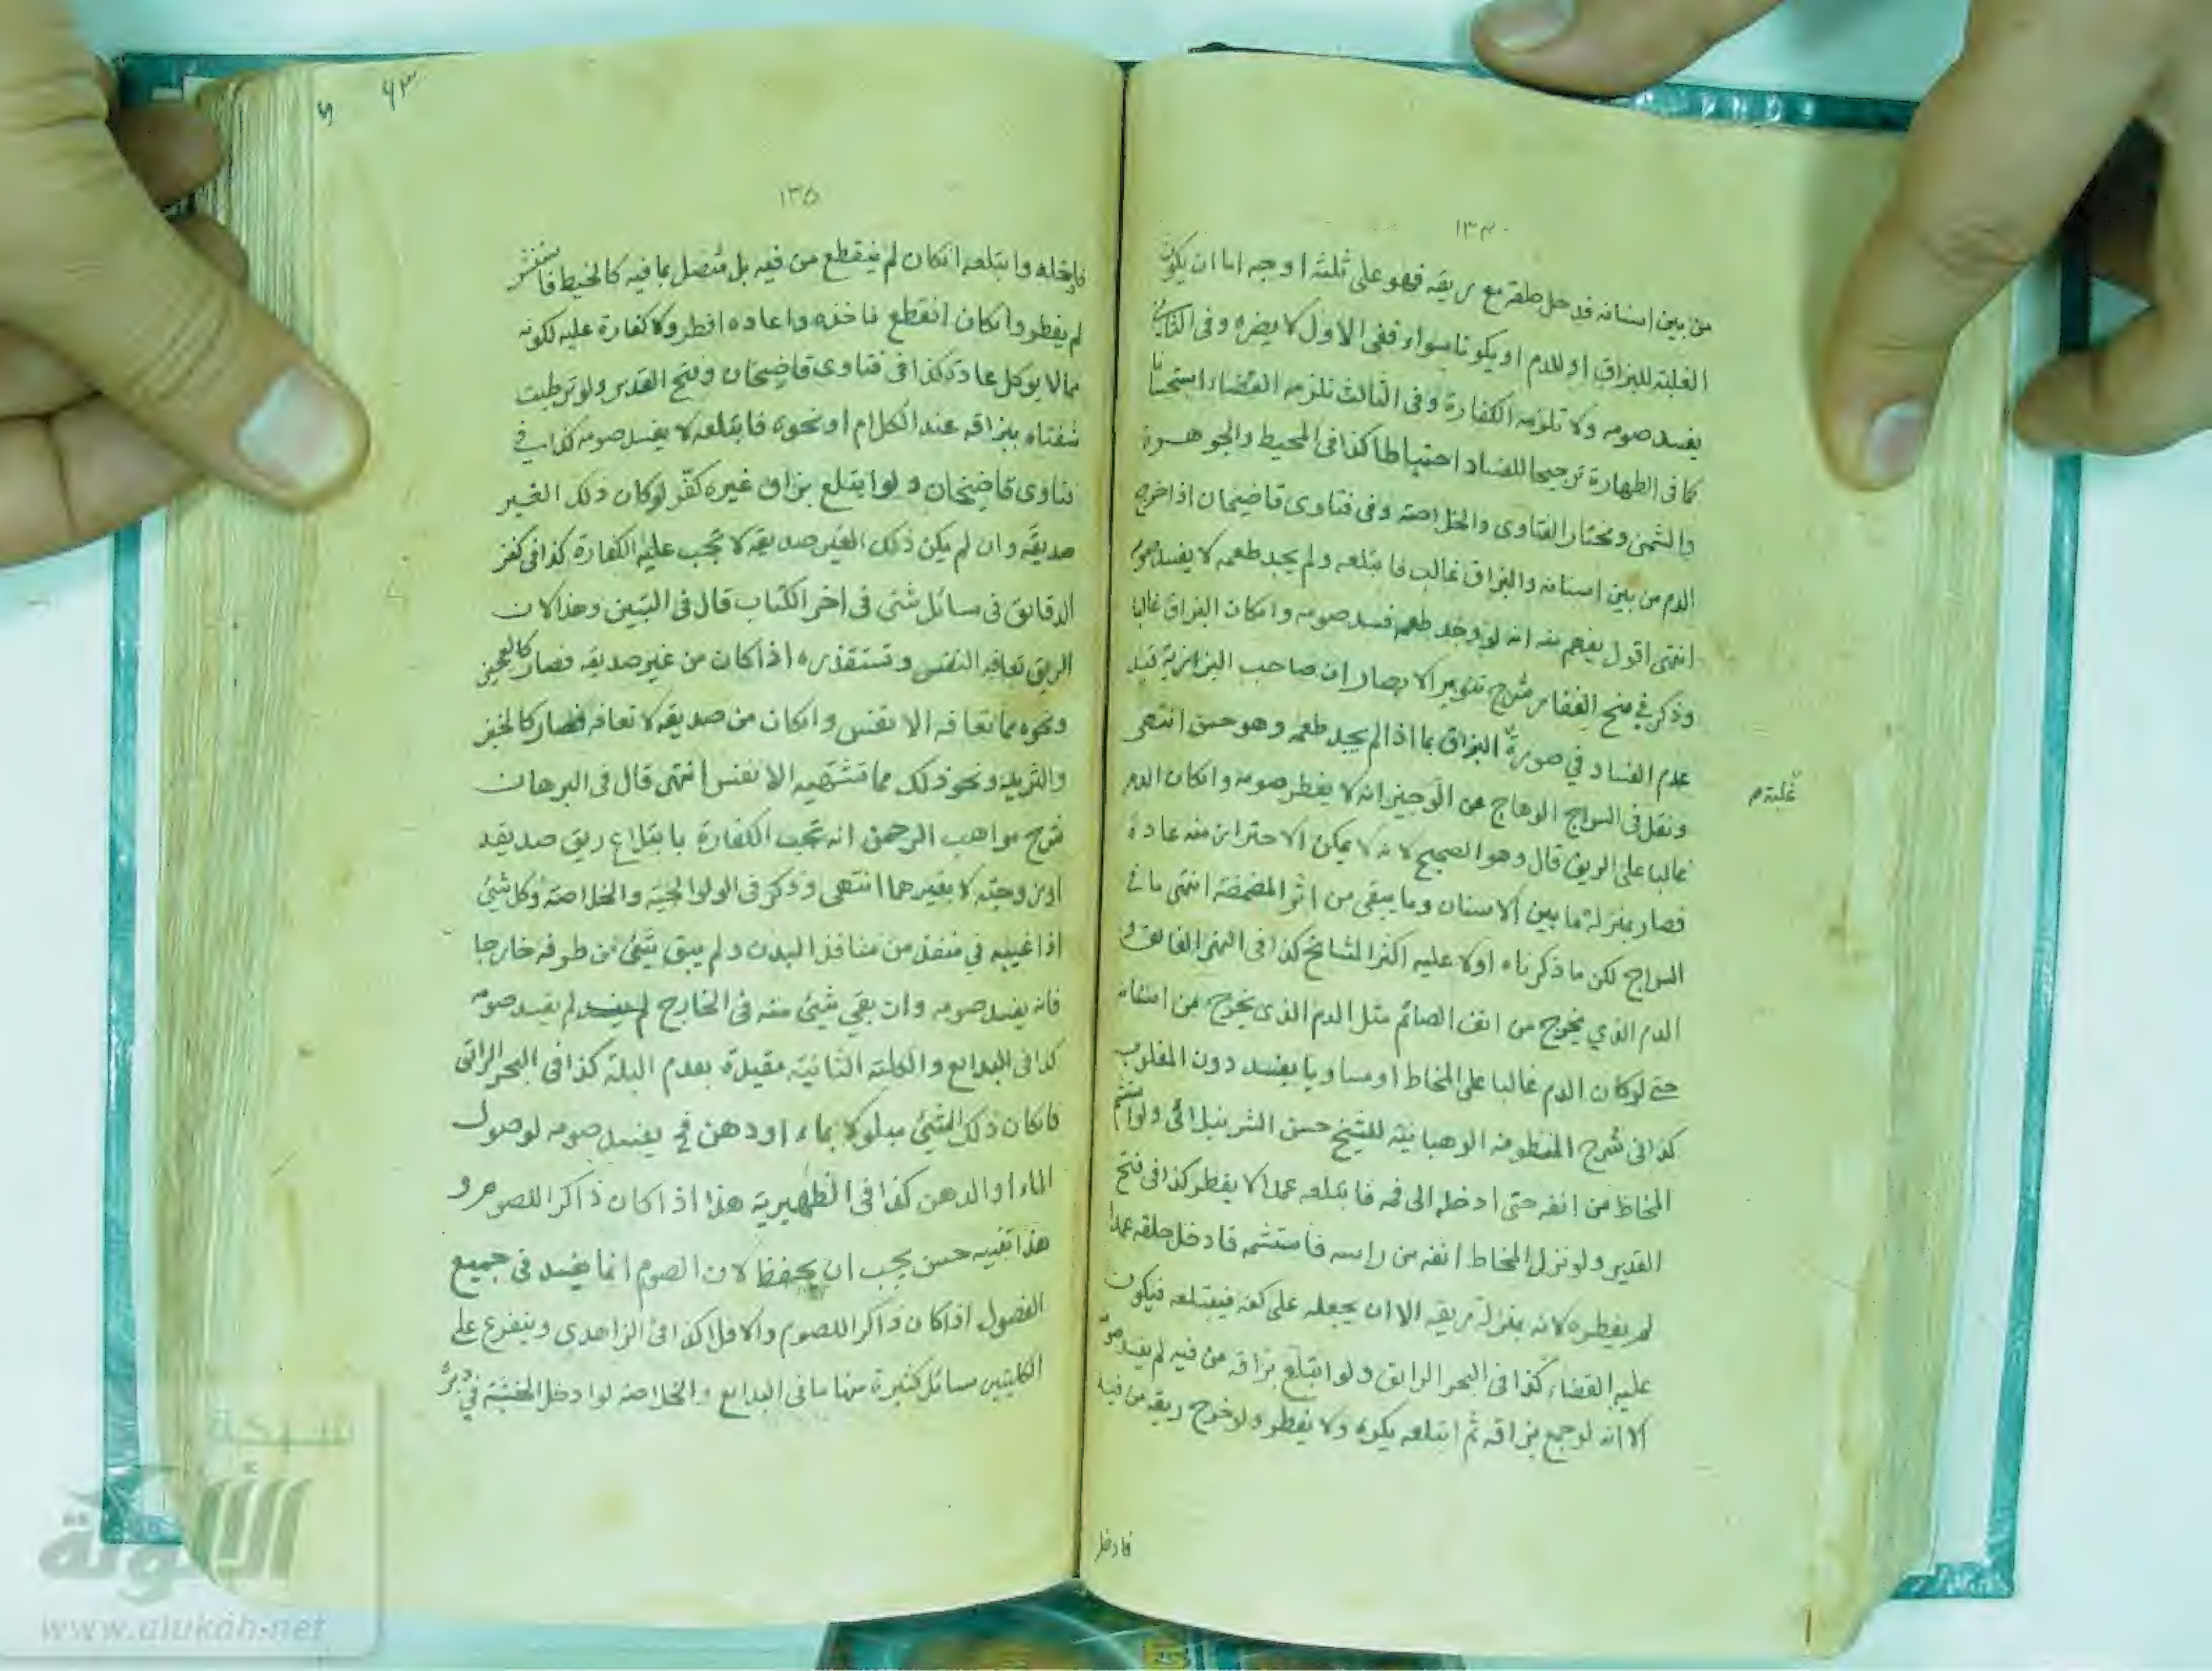 ١٣٤
من بين اسنانه فدخل حلقه مع ريقه فهو على ثلثة اوجه اما ان يكون
الغلبة للبزاق او للدم او يكونا سواء ففى الاول لا يضره وفى الثانى
يفسد صومه ولا تلزمه الكفارة وفى الثالث تلزمه القضاء استحسانا
كما فى الطهارة ترجيحا للفساد احتياطا كذا فى المحيط والجوهرة
والشمنى ومختار الفتاوى والخلاصة وفى فتاوى قاضيخان اذا خرج
الدم من بين اسنانه والبزاق غالب فابتلعه ولم يجد طعمه لا يفسد صومه
انتهى اقول يفهم منه انه لو وجد طعمه فسد صومه وانكان البزاق غالبا
وذكر في منح الغفار شرح تنوير الابصار ان صاحب البزازية قيد
عدم الفساد في صورة البزاق بما اذا لم يجد طعمه وهو حسن انتهى
غلبة م
ونقل فى السراج الوهاج عن الوجيز انه لا يفطر صومه وانكان الدم
غالبا على الريق قال وهو الصحيح لانه لا يمكن الاحتراز منه عادة
فصار بمنزلة ما بين الاسنان وما يبقى من اثر المضمضة انتهى ما في
السراج لكن ما ذكرناه اولا عليه اكثر المشائخ كذا فى النهر الفائق و
الدم الذي يخرج من انف الصائم مثل الدم الذى يخرج من اسنانه
حتى لو كان الدم غالبا على المخاط او مساويا يفسد دون المغلوب
كذا فى شرح المنظومة الوهبانية للشيخ حسن الشرنبلالى ولو استشم
المخاط من انفه حتى ادخله الى فمه فابتلعه عمدا لا يفطر كذا فى فتح
القدير ولو نزل المخاط انفه من راسه فاستشمه فادخل حلقه عمدا
لم يفطره لانه بمنزلة ريقه الا ان يجعله على كفه فيبتلعه فيكون
عليه القضاء كذا فى البحر الرائق ولو ابتلع بزاقه من فيه لم يفسد صو
الا انه لو جمع بزاقه ثم ابتلعه يكره ولا يفطر ولو خرج ريقه من فيه
فادخل
٦٣
١٣٥
فادخله وابتلعه انكان لم ينقطع من فيه بل متصل بما فيه كالخيط فاستنشر
لم يفطر وانكان انقطع فاخذه واعاده افطر ولا كفارة عليه لكونه
مما لا يوكل عادة كذا فى فتاوى قاضيخان وفتح القدير ولو ترطبت
شفتاه ببزاقه عند الكلام او نحوه فابتلعه لا يفسد صومه كذا في
فتاوى قاضيخان ولو ابتلع بزاق غيره كفّر لو كان ذلك الغير
صديقه وان لم يكن ذلك الغير صديقه لا تجب عليه الكفارة كذا فى كنز
الدقائق فى مسائل شتى فى اخر الكتاب قال فى التبيين وهذا لان
الريق تعافه النفس وتستقذره اذا كان من غير صديقه فصار كالعجين
ونحوه مما تعافه الانفس وانكان من صديقه لا تعافه فصار كالخبز
والثريد ونحو ذلك مما تشتهيه الانفس انتهى قال فى البرهان
شرح مواهب الرحمن انه تجب الكفارة بابتلاع ريق صديقه
او زوجته لا بغيرهما انتهى وذكر فى الولوالجية والخلاصة وكل شئ
اذا غيبه في منفذ من منافذ البدن ولم يبق شئ من طرفه خارجا
فانه يفسد صومه وان بقي شئ منه فى الخارج لم يفسد صومه
كذا فى البدايع والكلية الثانية مقيدة بعدم البلة كذا فى البحر الرائق
فانكان ذلك الشئ مبلولا بماء او دهن في يفسد صومه لوصول
الماء او الدهن كذا فى الظهيرية هذا اذا كان ذاكرا للصوم و
هذا تنبيه حسن يجب ان يحفظ لان الصوم انما يفسد فى جميع
الفصول اذا كان ذاكرا للصوم والا فلا كذا فى الزاهدي ويتفرع على
الكليتين مسائل كثيرة منها ما فى البدايع والخلاصة لو ادخل الخشبة في دبره
شبكة
الألوكة
www.alukah.net